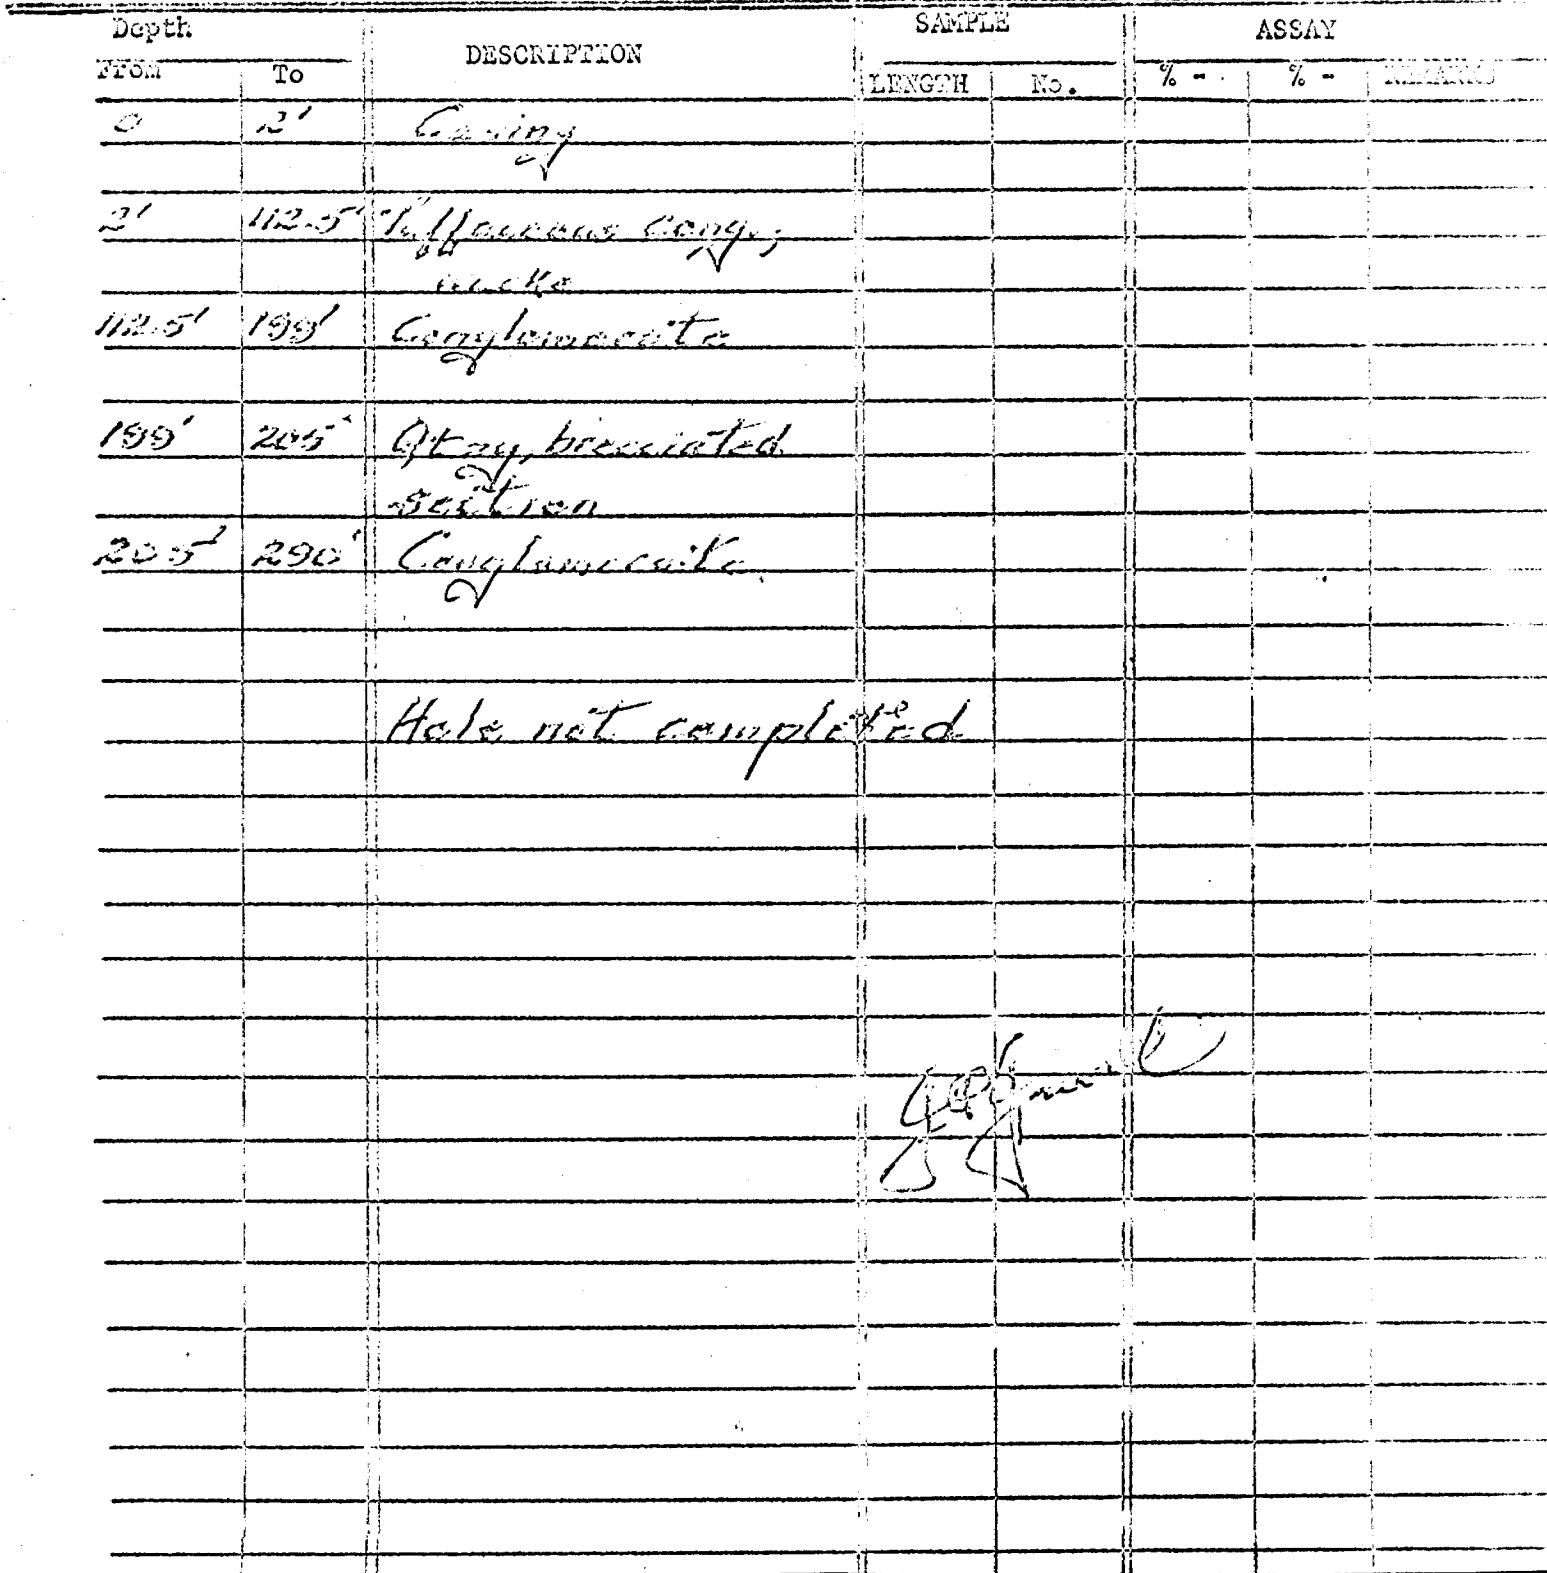 Depth SAMPLE ASSAY
DESCRIPTION
From To LENGTH No. % - % - REMARKS
0 2' Casing
2' 112.5' Tuffaceous cong.,
wacke
112.5' 199' Conglomerate
199' 205' Qtzy, brecciated
section
205' 290' Conglomerate
Hole not completed